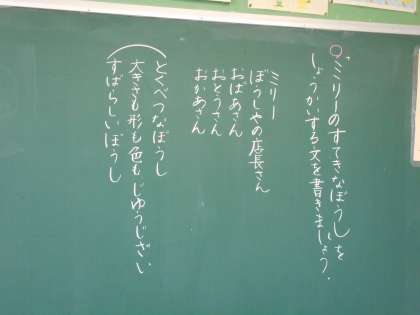 「ミリーのすてきなぼうし」を
しょうかいする文を書きましょう。
ミリー
ぼうしやの店長さん
おばあさん
おとうさん
おかあさん
とくべつなぼうし
大きさも形も色もじゆうじざい
すばらしいぼうし